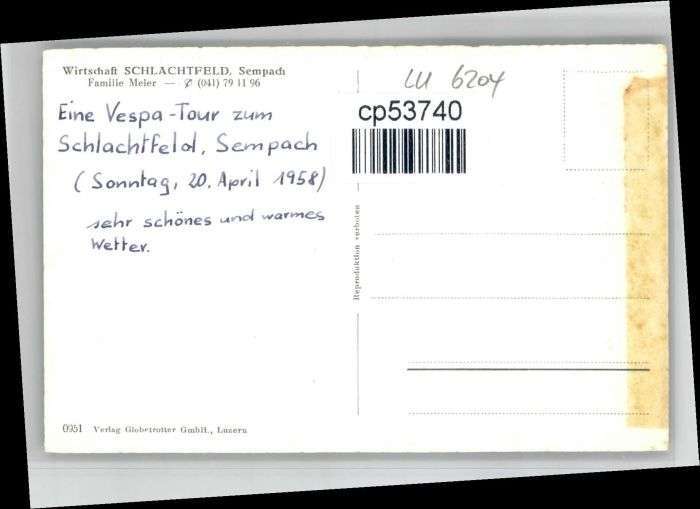 Wirtschaft SCHLACHTFELD, Sempach
Familie Meier — ✆ (041) 79 11 96
LU 6204
cp53740
Eine Vespa-Tour zum
Schlachtfeld, Sempach
(Sonntag, 20. April 1958)
sehr schönes und warmes
Wetter.
Reproduktion verboten
0951 Verlag Globetrotter GmbH., Luzern